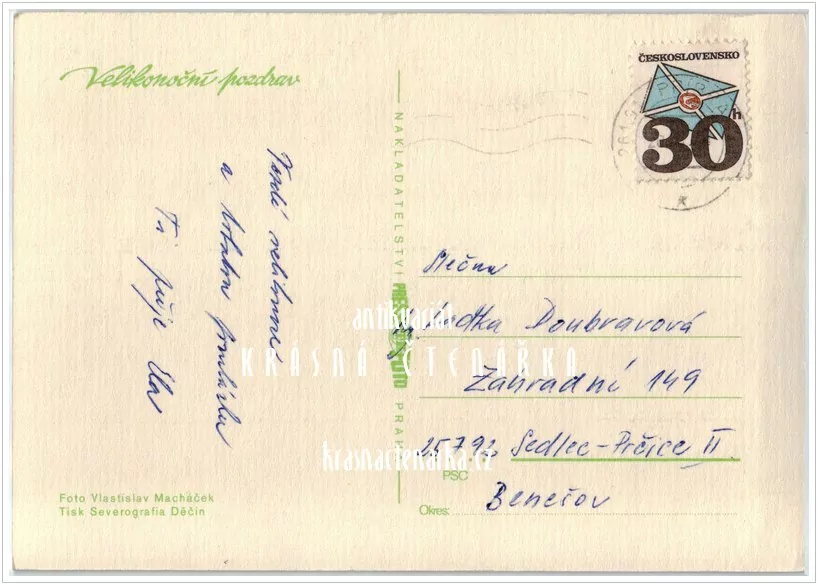 Velikonoční pozdrav
ČESKOSLOVENSKO
30h
a
Ti přeje Ela
NAKLADATELSTVÍ PRESSFOTO PRAHA
Slečna
Doubravová
Zahradní 149
25792 Sedlec-Prčice II.
PSČ
Benešov
Okres:
Foto Vlastislav Macháček
Tisk Severografia Děčín
antikvariát
KRÁSNÁ ČTENÁŘKA
krasnactenarka.cz